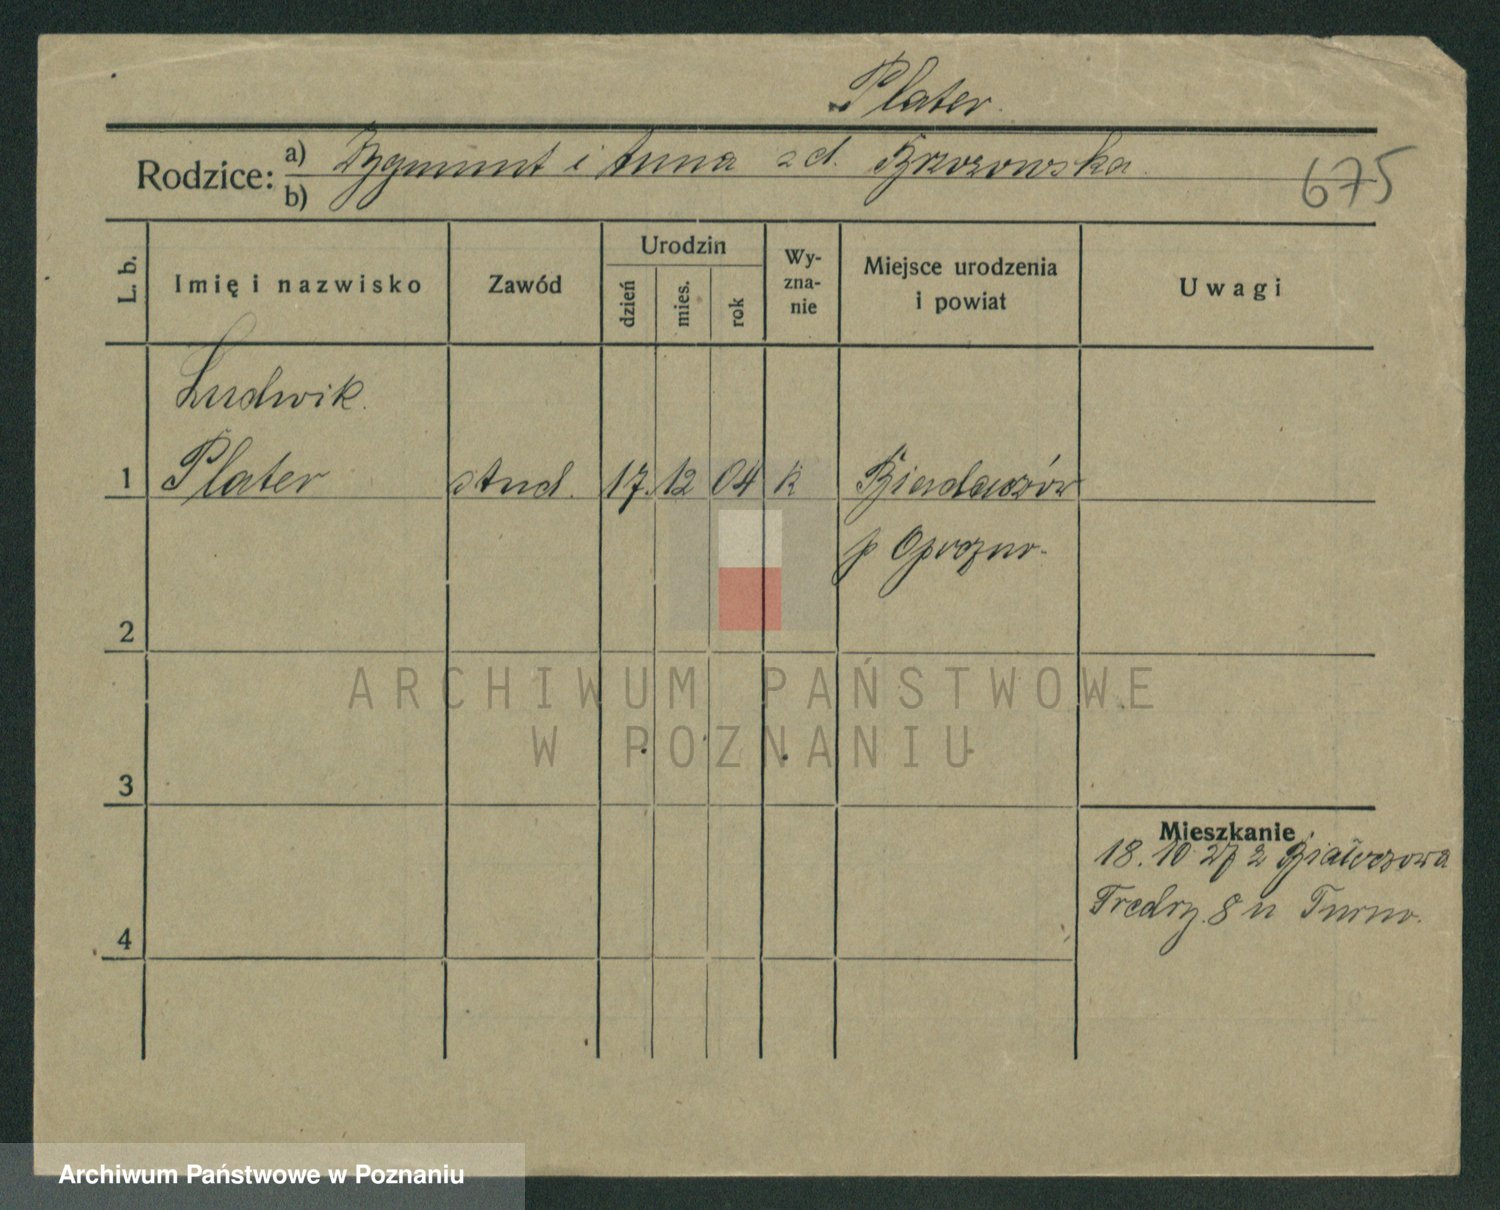 Plater.
Rodzice: a) Zygmunt i Anna zd. Brzozowska.
b)
675
L. b.
Imię i nazwisko
Zawód
Urodzin
dzień
mies.
rok
Wy-
zna-
nie
Miejsce urodzenia
i powiat
Uwagi
Ludwik.
1 Plater stud. 17. 12 04 k Białaczów
p Opoczno.
2
ARCHIWUM PAŃSTWOWE
W POZNANIU
3
Mieszkanie
18.10 27 z Białaczowa
Fredry. 8 u Turno.
4
Archiwum Państwowe w Poznaniu